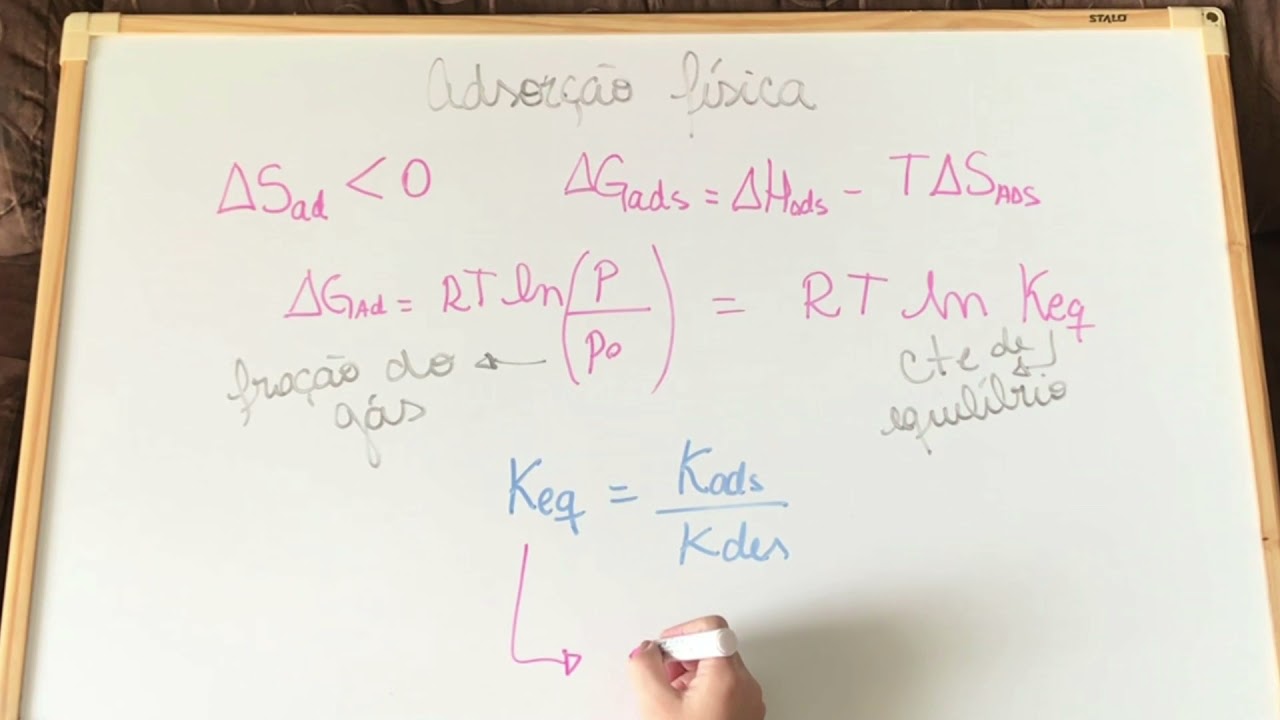 STALO
Adsorção física
ΔSad < 0
ΔGads = ΔHads - TΔSADS
ΔGAd = RT ln(P/Po) = RT ln Keq
fração do gás
cte de equilíbrio
Keq = Kads/Kdes